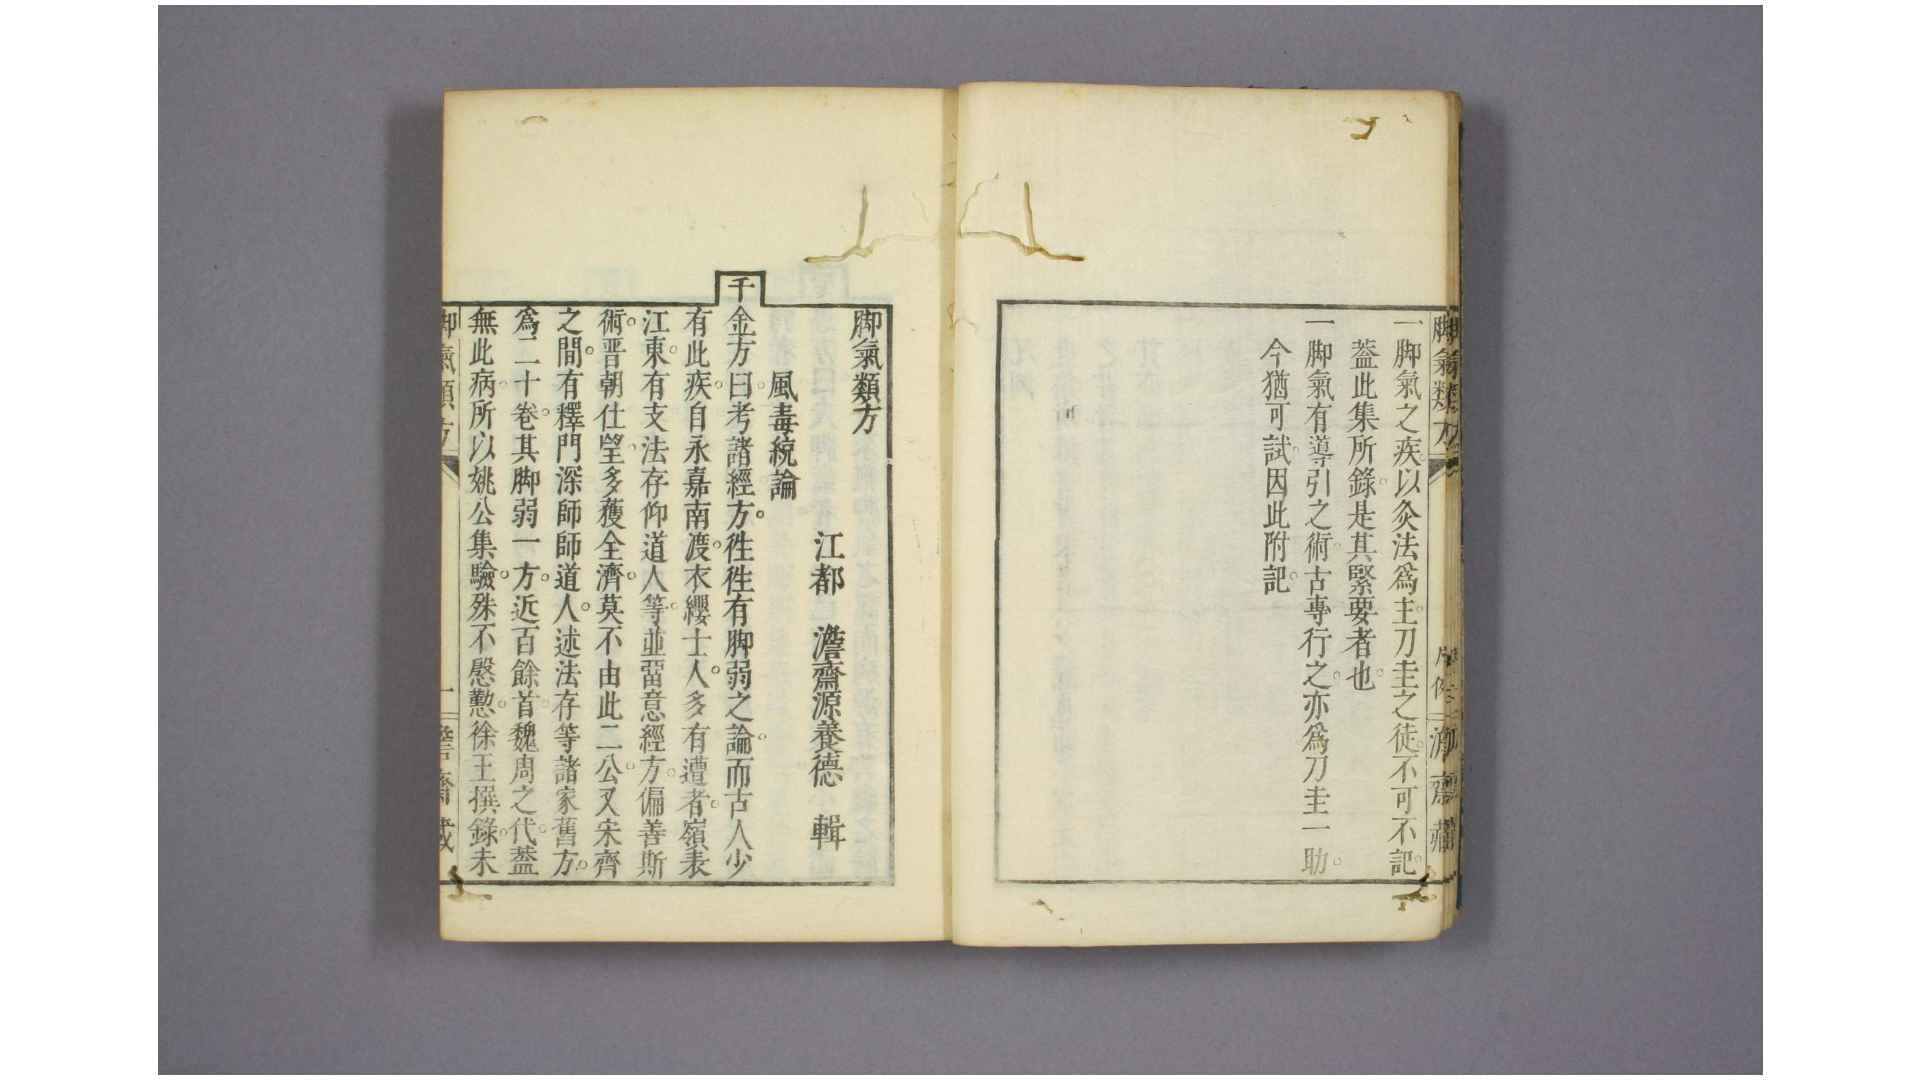 脚氣類方
一脚氣之疾以灸法爲主刀圭之徒不可不記
蓋此集所錄是其緊要者也
一脚氣有導引之術古專行之亦爲刀圭一助
今猶可試因此附記
脚氣類方
江都　澹齋源養德　輯
風毒統論
千金方曰考諸經方徃徃有脚弱之論而古人少
有此疾自永嘉南渡衣纓士人多有遭者嶺表
江東有支法存仰道人等並留意經方偏善斯
術晋朝仕望多獲全濟莫不由此二公又宋齊
之間有釋門深師師道人述法存等諸家舊方
爲二十卷其脚弱一方近百餘首魏周之代蓋
無此病所以姚公集驗殊不慇懃徐王撰錄未
脚氣類方　一　澹齋藏